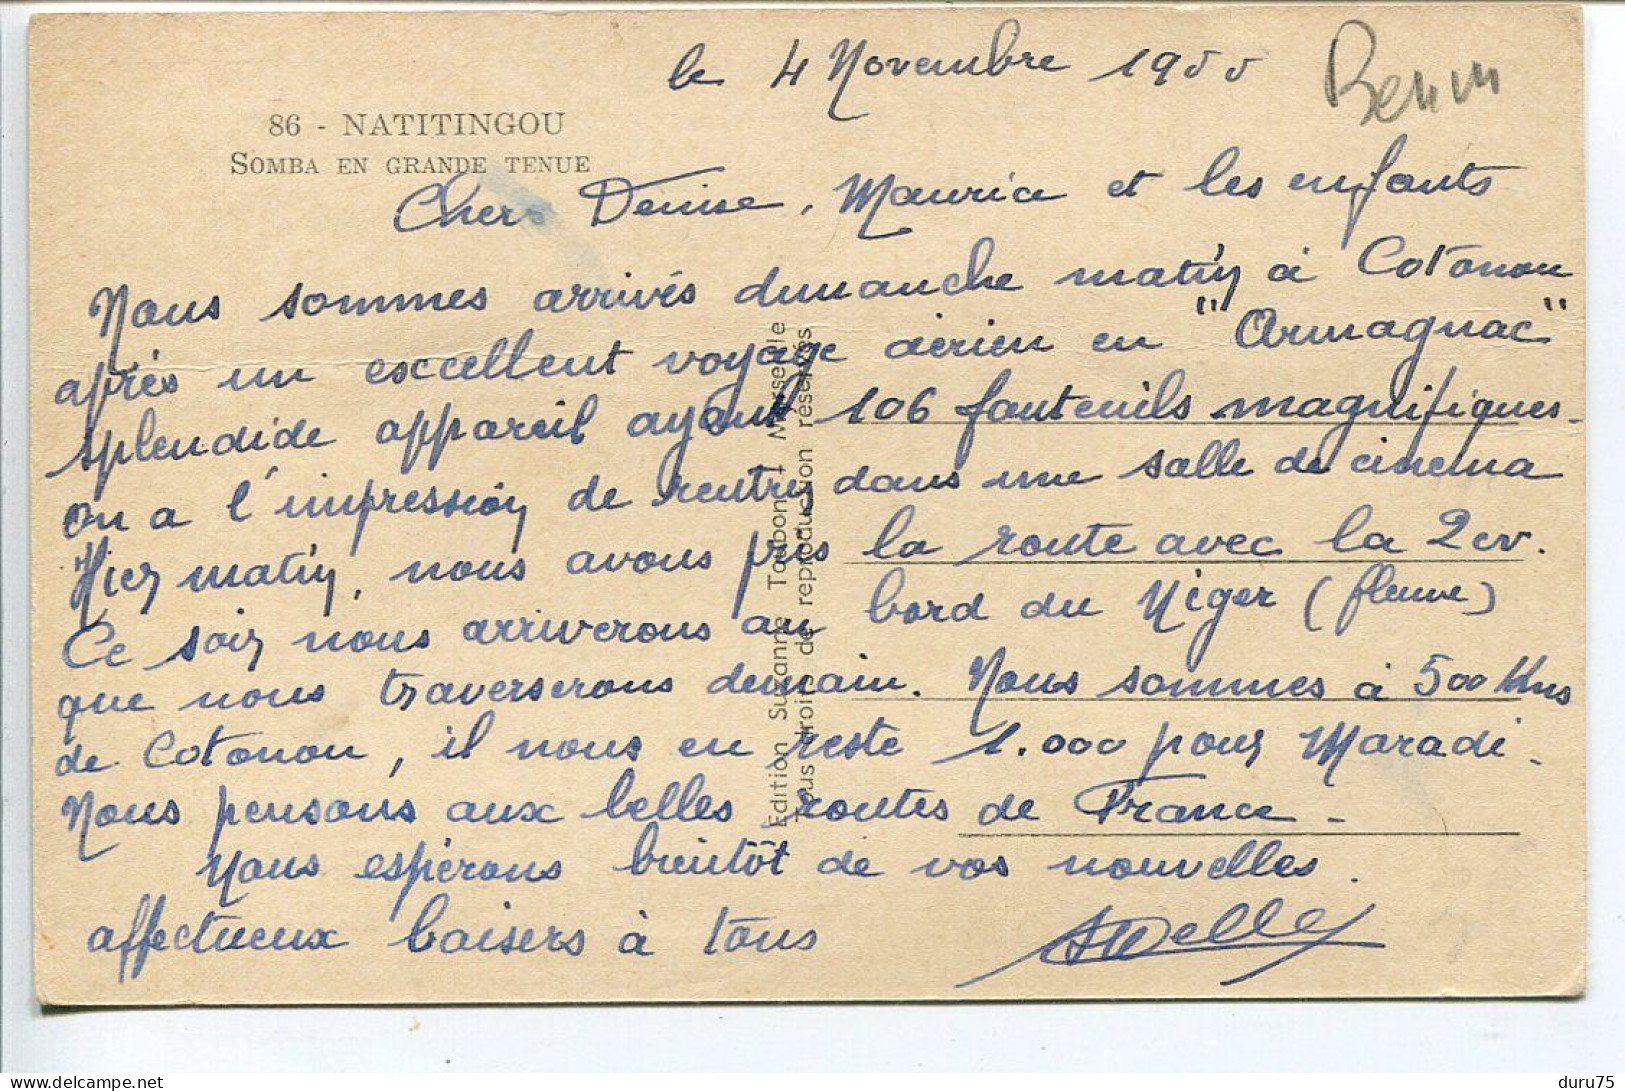 le 4 Novembre 1955
Benin
86 - NATITINGOU
SOMBA EN GRANDE TENUE
Chers Denise, Maurice et les enfants
Nous sommes arrivés dimanche matin à Cotonou
après un excellent voyage aérien en "Armagnac"
splendide appareil ayant 106 fauteuils magnifiques.
On a l'impression de rentrer dans une salle de cinema
Hier matin, nous avons pris la route avec la 2cv.
Ce soir nous arriverons au bord du Niger (fleuve)
que nous traverserons demain. Nous sommes à 500 Kms
de Cotonou, il nous en reste 1.000 pour Maradi.
Nous pensons aux belles routes de France -
Nous espérons bientôt de vos nouvelles.
affectueux baisers à tous
Edition Suzanne Taubont Mysselle
Tous droits de reproduction réservés
delcampe.net
duru75